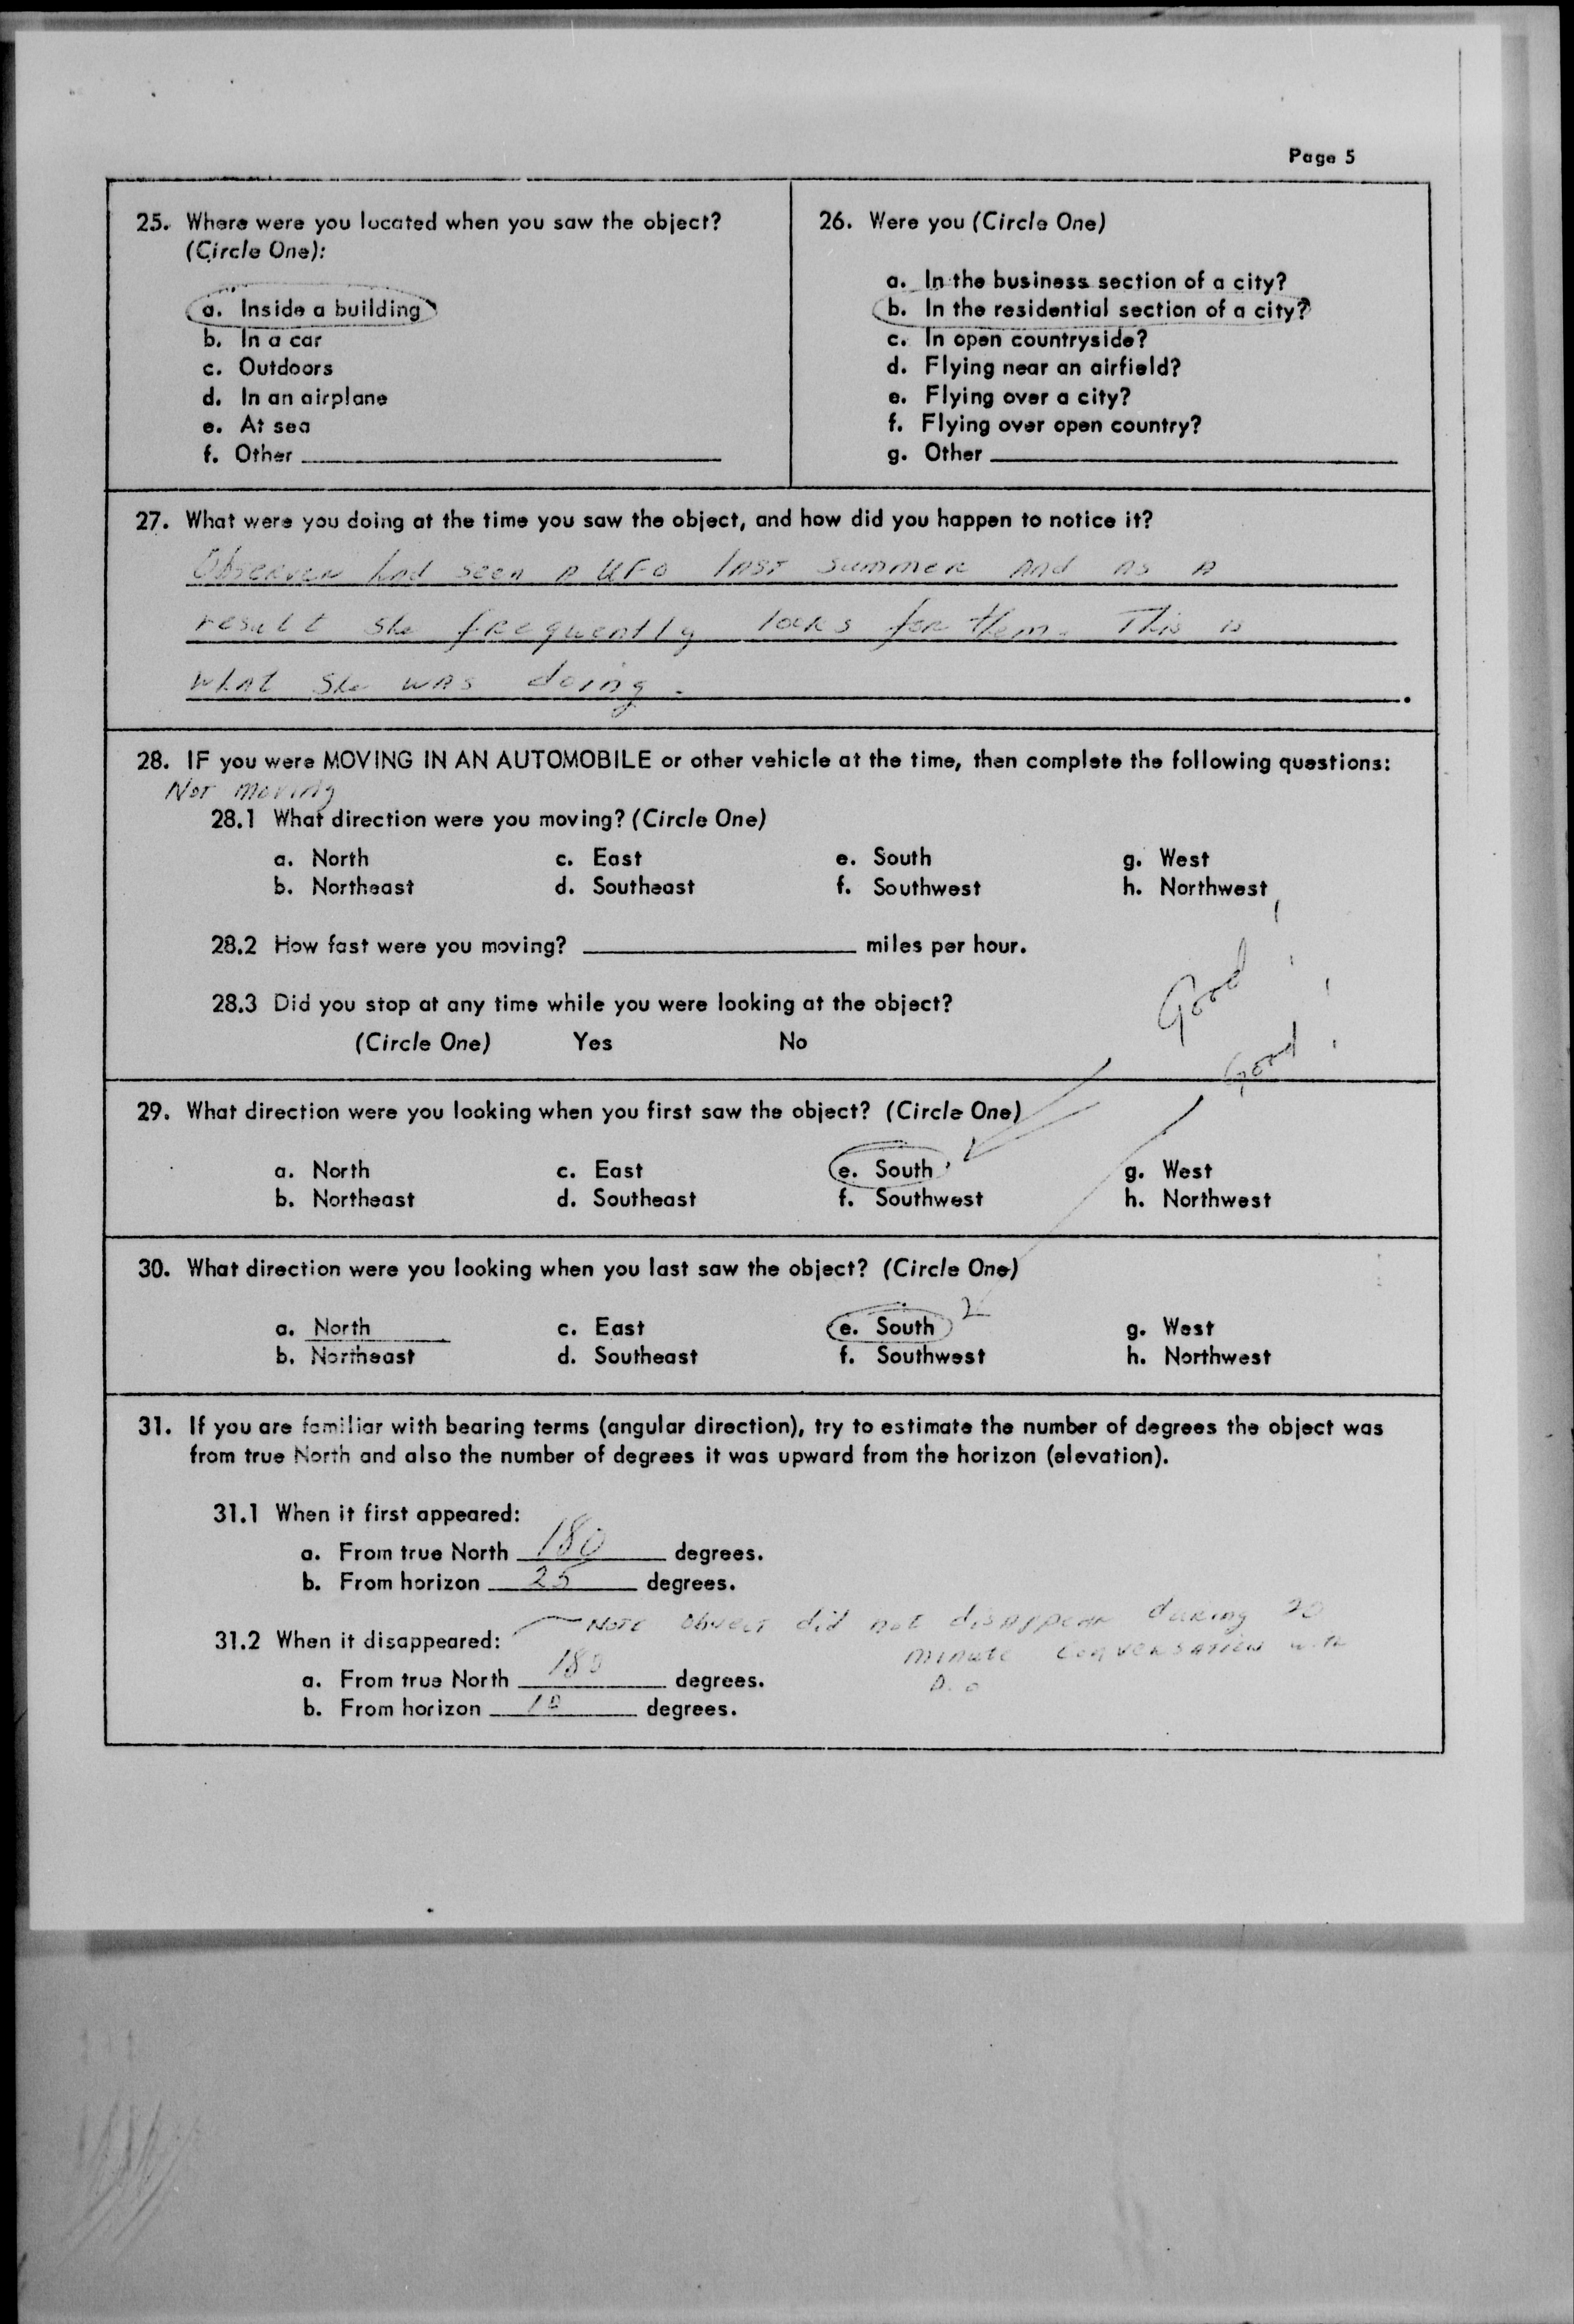 Page 5
25. Where were you located when you saw the object?
(Circle One):
a. Inside a building
b. In a car
c. Outdoors
d. In an airplane
e. At sea
f. Other
26. Were you (Circle One)
a. In the business section of a city?
b. In the residential section of a city?
c. In open countryside?
d. Flying near an airfield?
e. Flying over a city?
f. Flying over open country?
g. Other
27. What were you doing at the time you saw the object, and how did you happen to notice it?
Observer had seen a UFO last summer and as a
result she frequently looks for them. This is
what she was doing.
28. IF you were MOVING IN AN AUTOMOBILE or other vehicle at the time, then complete the following questions:
Not moving
28.1 What direction were you moving? (Circle One)
a. North c. East e. South g. West
b. Northeast d. Southeast f. Southwest h. Northwest
28.2 How fast were you moving? miles per hour.
Good
28.3 Did you stop at any time while you were looking at the object?
(Circle One) Yes No
Good
29. What direction were you looking when you first saw the object? (Circle One)
a. North c. East e. South g. West
b. Northeast d. Southeast f. Southwest h. Northwest
30. What direction were you looking when you last saw the object? (Circle One)
a. North c. East e. South g. West
b. Northeast d. Southeast f. Southwest h. Northwest
31. If you are familiar with bearing terms (angular direction), try to estimate the number of degrees the object was
from true North and also the number of degrees it was upward from the horizon (elevation).
31.1 When it first appeared:
a. From true North 180 degrees.
b. From horizon 25 degrees.
Note object did not disappear during 20
31.2 When it disappeared: minute conversation with
a. From true North 180 degrees.
b. From horizon 10 degrees.